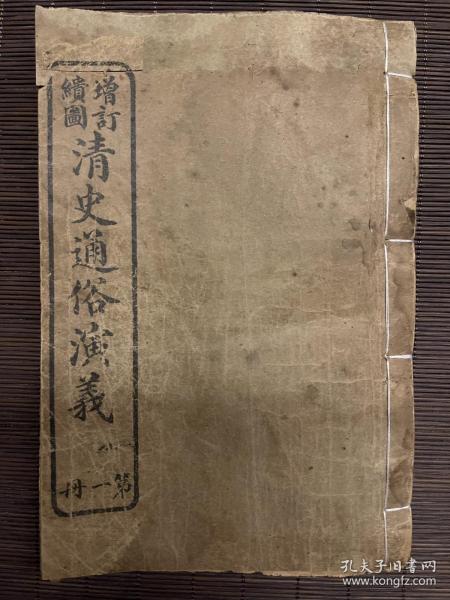 增訂
繢圖
清史通俗演義
第一冊
孔夫子旧书网
www.kongfz.com